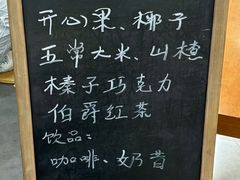 开心果、椰子
五常大米、山楂
榛子巧克力
伯爵红茶
饮品:
咖啡、奶昔